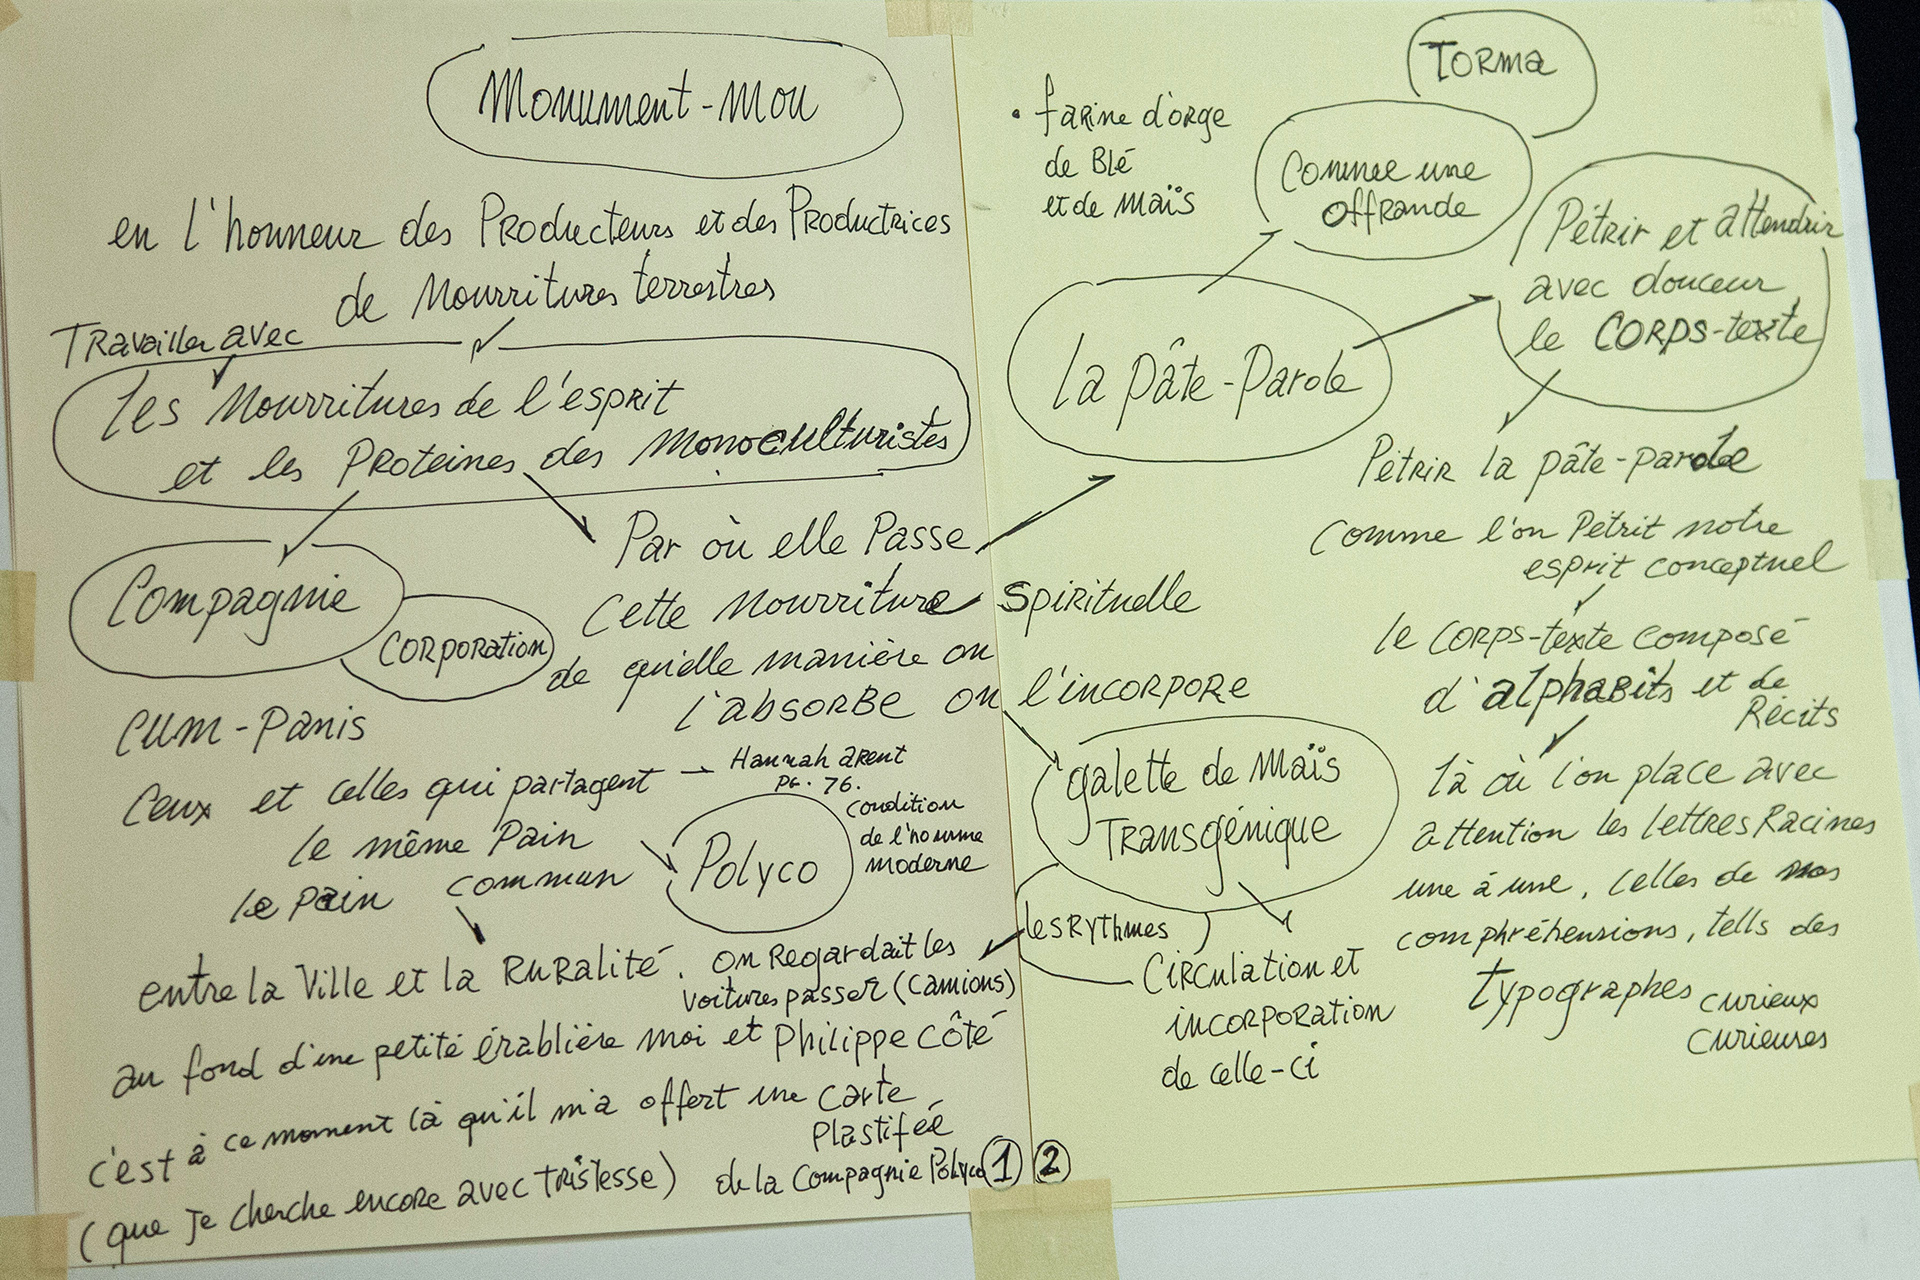 Monument-mou
en l'honneur des Producteurs et des Productrices
de Nourritures terrestres
Travailler avec
les Nourritures de l'esprit
et les Proteines des monoculturistes
Compagnie
Corporation
Par où elle Passe
Cette Nourriture Spirituelle
de qu'elle manière on
l'absorbe on l'incorpore
Cum-Panis
Ceux et celles qui partagent
le même Pain
le pain commun
Hannah arent
PG. 76.
condition
de l'homme
moderne
Polyco
entre la Ville et la Ruralité.
on Regardait les
voitures passer (camions)
au fond d'une petite érablière moi et Philippe Côté
c'est à ce moment là qu'il m'a offert une carte
Plastifée
(que je cherche encore avec tristesse) de la Compagnie Polyco
1
2
Torma
• farine d'orge
de Blé
et de Maïs
Comme une
offrande
Pétrir et attendrir
avec douceur
le Corps-texte
la pâte-Parole
Pétrir la pâte-parole
Comme l'on Pétrit notre
esprit conceptuel
le corps-texte composé
d'alphabits et de
Récits
là où l'on place avec
attention les lettres Racines
une à une, celles de nos
comphréhensions, tells des
typographes curieux
curieuses
galette de Maïs
Transgénique
les Rythmes
Circulation et
incorporation
de celle-ci